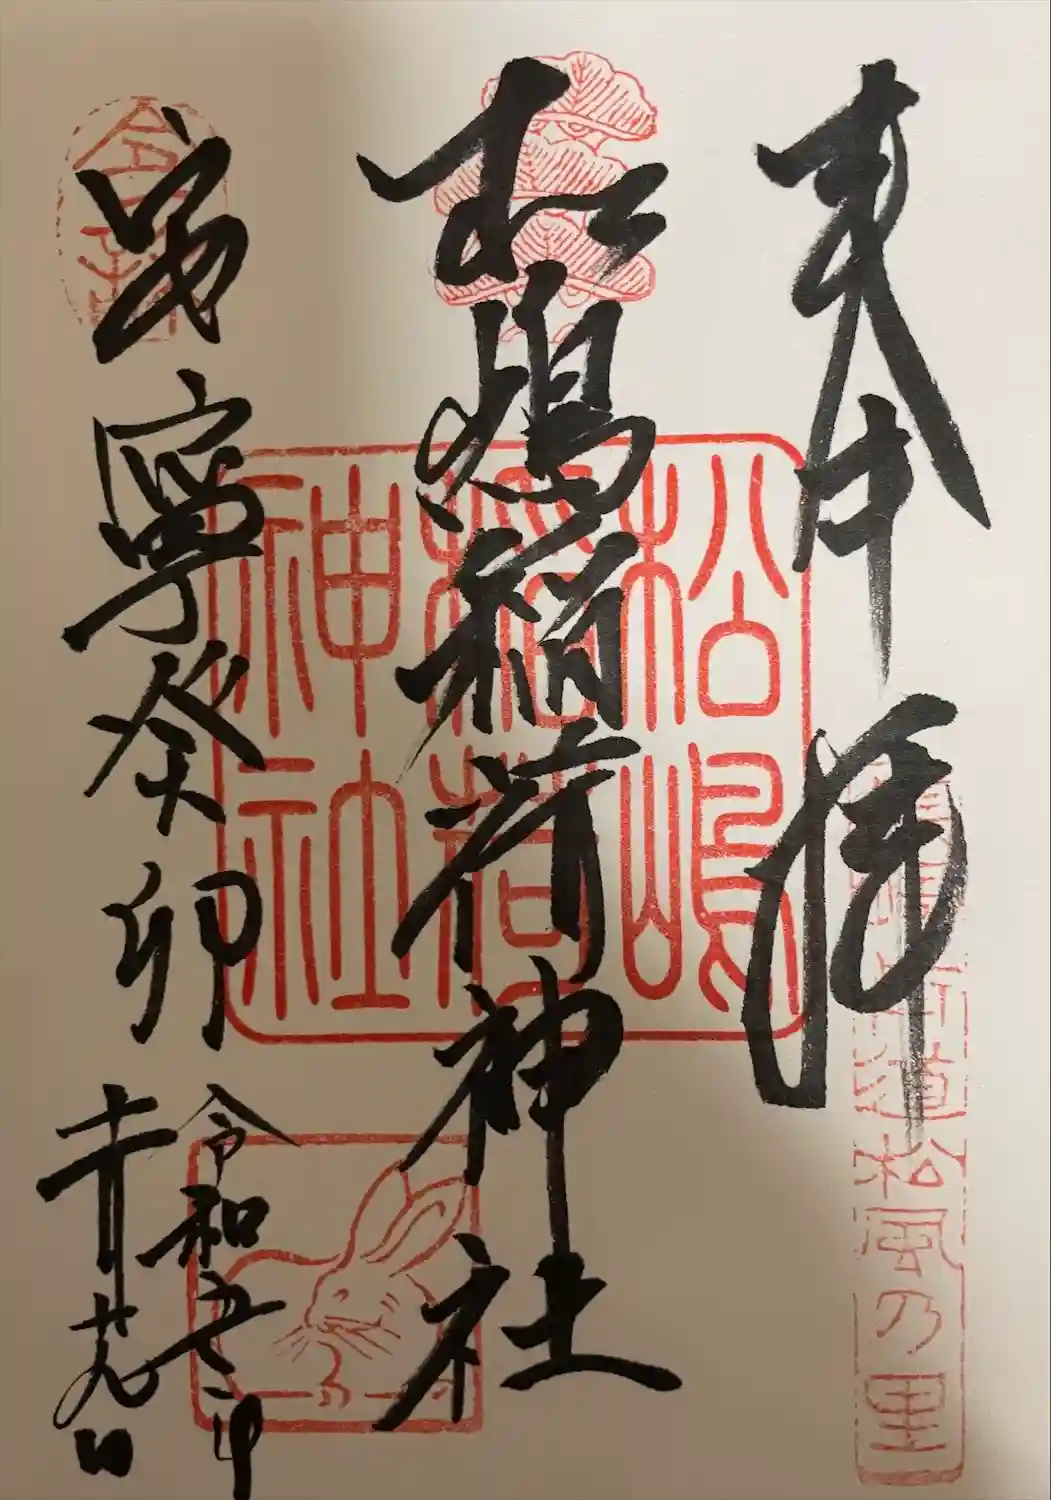 奉拝
松嶋稲荷神社
安寧癸卯
令和五年
十月廿九日
松嶋
稲荷
神社
街道松風乃里